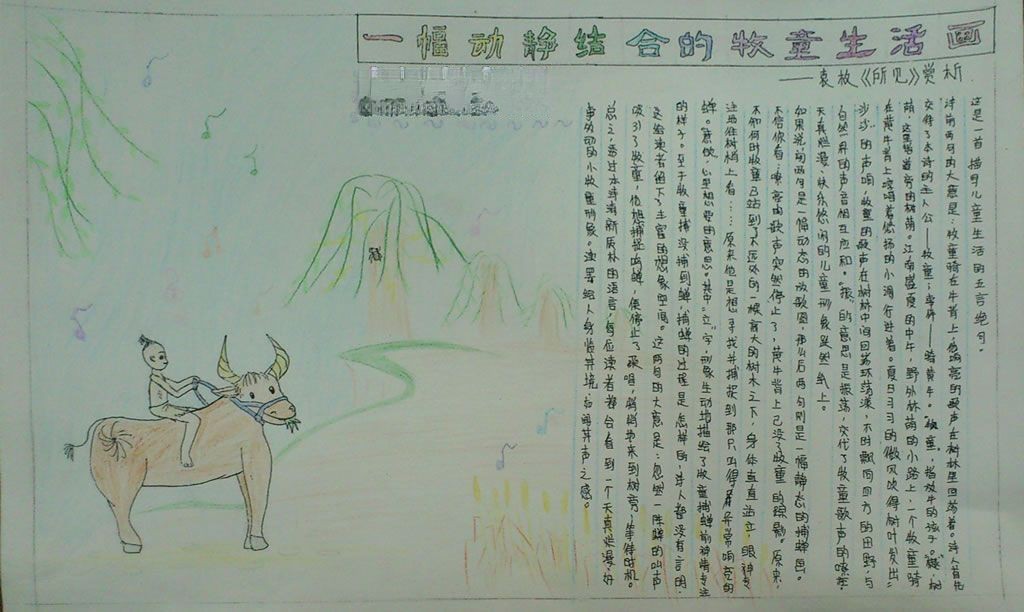 一幅动静结合的牧童生活画
——袁枚《所见》赏析
这是一首描写儿童生活的五言绝句。
诗前两句的大意是：牧童骑在牛背上，他响亮的歌声在树林里回荡着。诗人首先
交待了本诗的主人公——牧童；坐骑——骑黄牛。“牧童”，指放牛的孩子。“樾”，树
荫，这里指道旁的树荫。江南盛夏的中午，野外林荫的小路上，一个牧童骑
在黄牛背上，哼唱着悠扬的小调行进着。夏日习习的微风吹得树叶发出
沙沙的声响，牧童的歌声在树林中间回荡环荡漾，不时飘向四方的田野，与
自然界的声音相互应和。“振”的意思是振荡，交代了牧童歌声的嘹亮
天真烂漫、快乐悠闲的儿童形象跃然纸上。
如果说，前两句是一幅动态的放歌图，那么后两句则是一幅静态的捕蝉图。
不信你看：嘹亮的歌声突然停止了，黄牛背上已没了牧童的踪影。原来，
不知何时牧童已站到了不远处的一棵高大的树木之下，身体直直站立，眼神专
注地往树梢上看……原来他是想寻找并捕捉到那只叫得异常响亮的
蝉。“意欲”，心里想要的意思。其中“立”字，形象生动地描绘了牧童捕蝉前神情专注
的样子。至于牧童捕没捕到蝉，捕蝉的过程是怎样的，诗人都没有言明，
这给读者留下了丰富的想象空间。这两句的大意是：忽然一阵蝉的叫声
吸引了牧童，他想捕捉鸣蝉，便停止了歌唱，悄悄地来到树旁，等待时机。
总之，透过本诗清新质朴的语言，每位读者都会看到一个天真烂漫、好
事好动的小牧童形象。渲染给人身临其境、如闻其声之感。